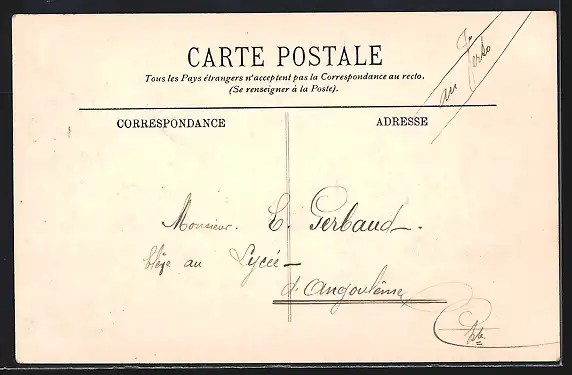 CARTE POSTALE
Tous les Pays étrangers n'acceptent pas la Correspondance au recto.
(Se renseigner à la Poste).
CORRESPONDANCE
ADRESSE
Monsieur. E. Gerbaud.
Elève au Lycée
d'Angoulême
Cte
au